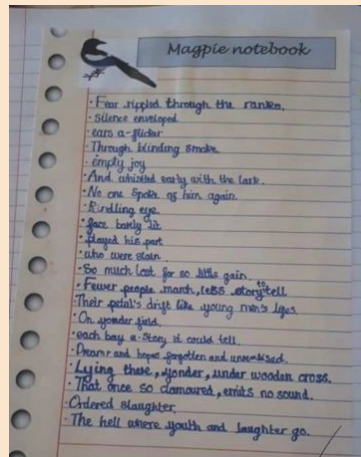 Magpie notebook
· Fear rippled through the ranks.
· silence enveloped
· ears a-flicker
· Through blinding smoke
· empty joy
· And whistled early with the lark.
· No one spoke of him again.
· Kindling eye
· face barely lit
· played his part
· who were slain
· So much lost for so little gain.
· Fewer people march, less story to tell
· Their petal's drift like young men's lives.
· On yonder field
· each boy a story it could tell
· Dreams and hopes forgotten and
· Lying there, yonder, under wooden cross.
· That once so clamoured, emits no sound.
· Ordered slaughter.
· The hell where youth and laughter go.